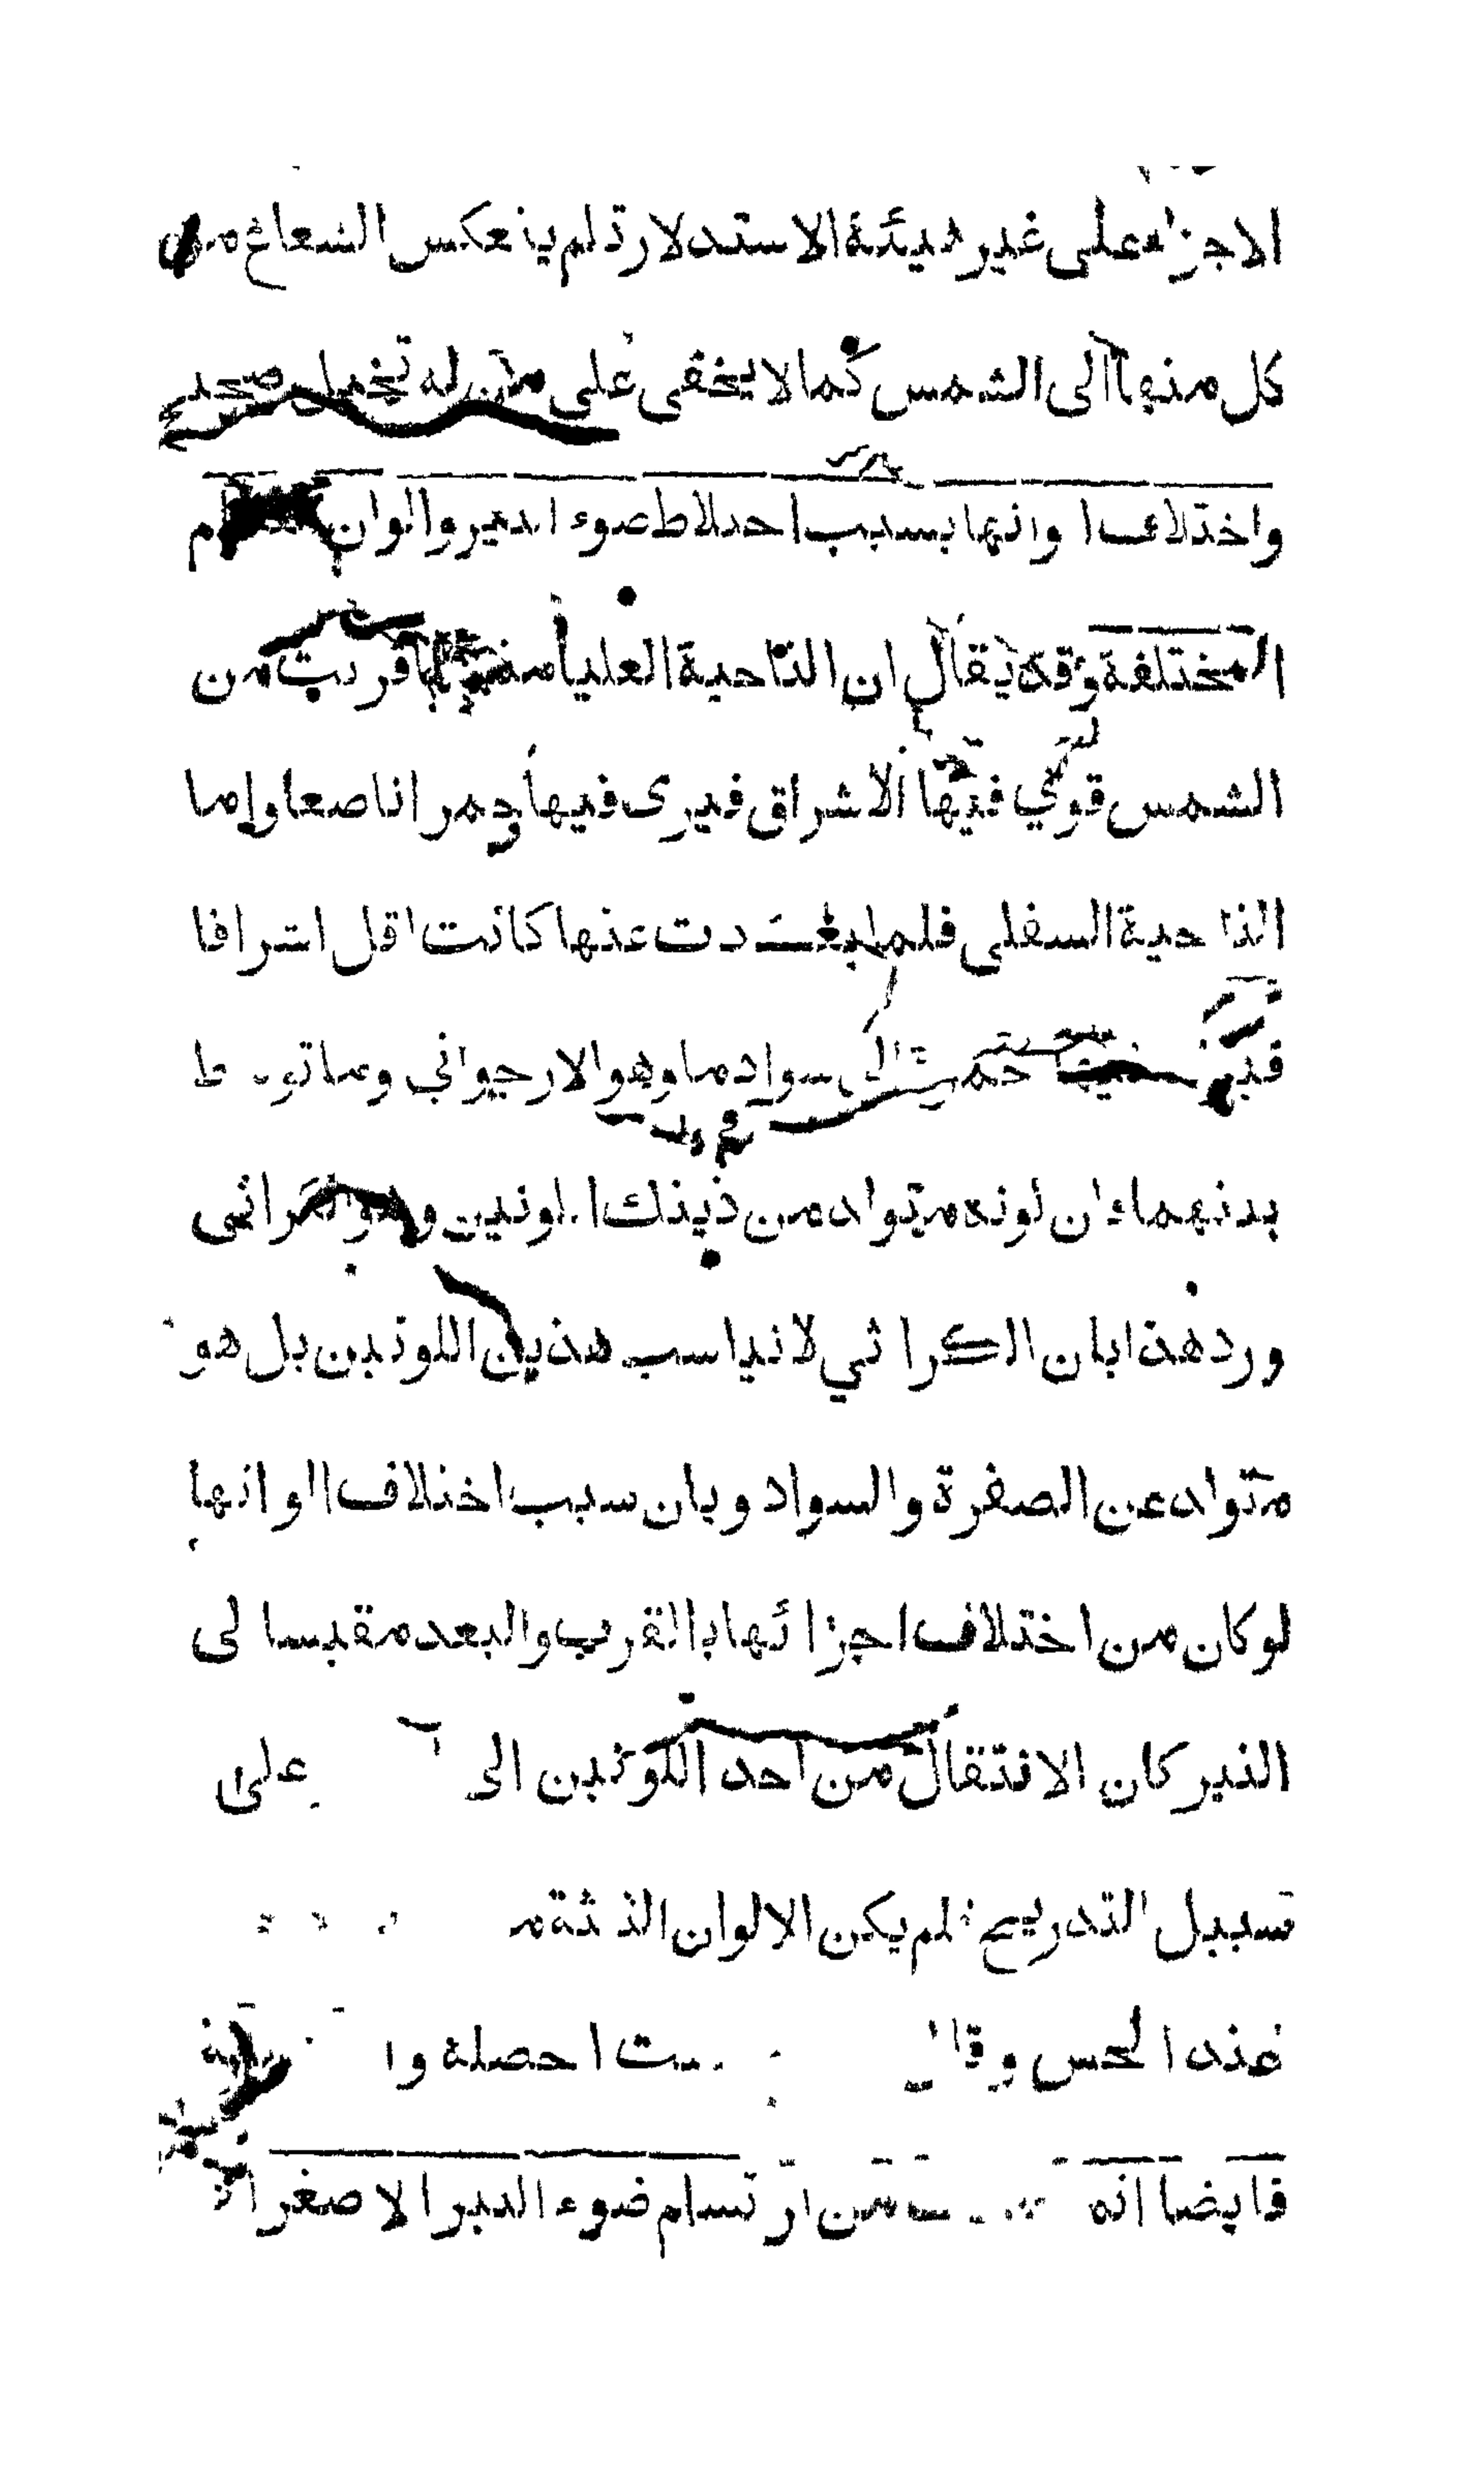 الاجزاء على غير هيئة الاستدارة لم ينعكس الشعاع من
كل منها الى الشمس كما لا يخفى على من له تخيل صحيح
واختلاف الوانها بسبب اختلاط ضوء النير والوان
المختلفة وقد يقال ان الناحية العليا منها لما قربت من
الشمس قوي فيها الاشراق فيرى فيها حمر اناصعا واما
الناحية السفلى فلما بعدت عنها كانت اقل اشراقا
فيرى فيها حمرة الى سواد ما وهو الارجواني وما توسط
بينهما كان لونه متولد من ذينك اللونين وهو الكراثي
ورد هذا بان الكراثي لا يناسب هذين اللونين بل هو
متولد عن الصفرة والسواد وبان سبب اختلاف الوانها
لو كان من اختلاف اجزائها بالقرب والبعد مقيسا لى
النير كان الانتقال من احد اللونين الى على
سبيل التدريج فلم يكن الالوان
عند الحس وقال حصله وا
فايضا انه من ارتسام ضوء النير الاصغر